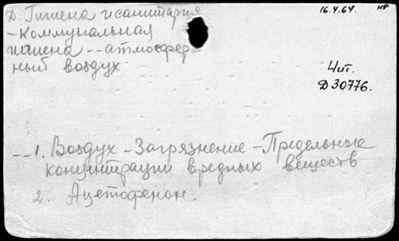 Д. Гигиена и санитария
16.4.64. нр
- Коммунальная
гигиена -- атмосфер-
ный воздух
Чит.
Д30776.
-- 1. Воздух - Загрязнение - Предельные
концентрации вредных веществ
2. Ацетофенон.